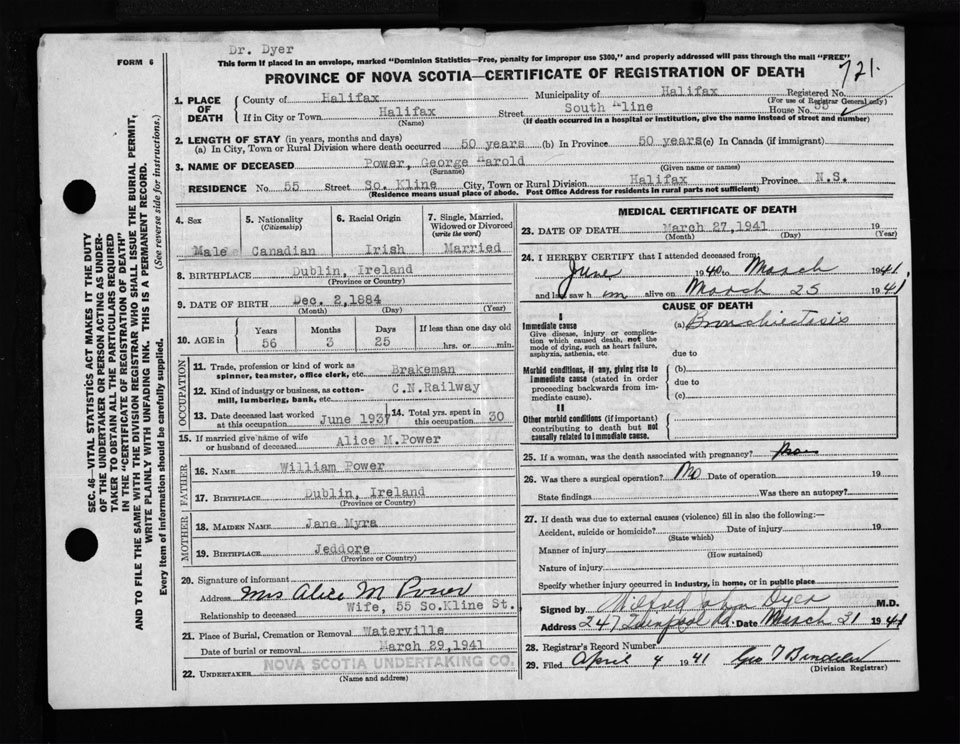 Dr. Dyer
FORM 6
This form if placed in an envelope, marked "Dominion Statistics—Free, penalty for improper use $300," and properly addressed will pass through the mail "FREE"
PROVINCE OF NOVA SCOTIA—CERTIFICATE OF REGISTRATION OF DEATH
721.
1. PLACE OF DEATH
County of Halifax Municipality of Halifax Registered No.
(For use of Registrar General only)
If in City or Town Halifax Street South Kline House No. 55
(Name) (If death occurred in a hospital or institution, give the name instead of street and number)
2. LENGTH OF STAY (in years, months and days)
(a) In City, Town or Rural Division where death occurred 50 years (b) In Province 50 years (c) In Canada (if immigrant)
3. NAME OF DECEASED Power, George Harold
(Surname) (Given name or names)
RESIDENCE No. 55 Street So. Kline City, Town or Rural Division Halifax Province N.S.
(Residence means usual place of abode. Post Office Address for residents in rural parts not sufficient)
4. Sex
Male
5. Nationality
(Citizenship)
Canadian
6. Racial Origin
Irish
7. Single, Married, Widowed or Divorced
(write the word)
Married
8. BIRTHPLACE Dublin, Ireland
(Province or Country)
9. DATE OF BIRTH Dec. 2,1884
(Month) (Date) (Year)
10. AGE in
Years Months Days If less than one day old
56 3 25 hrs. or min.
OCCUPATION
11. Trade, profession or kind of work as spinner, teamster, office clerk, etc. Brakeman
12. Kind of industry or business, as cotton-mill, lumbering, bank, etc. C.N.Railway
13. Date deceased last worked at this occupation June 1937
14. Total yrs. spent in this occupation 30
15. If married give name of wife or husband of deceased Alice M.Power
FATHER
16. NAME William Power
17. BIRTHPLACE Dublin, Ireland
MOTHER
18. MAIDEN NAME Jane Myra
19. BIRTHPLACE Jeddore
(Province or Country)
20. Signature of informant
Address Mrs Alice M Power
Relationship to deceased Wife, 55 So.Kline St.
21. Place of Burial, Cremation or Removal Waterville
Date of burial or removal March 29,1941
NOVA SCOTIA UNDERTAKING CO.
22. UNDERTAKER
(Name and address)
MEDICAL CERTIFICATE OF DEATH
23. DATE OF DEATH March 27,1941 19
(Month) (Day) (Year)
24. I HEREBY CERTIFY that I attended deceased from:
June 1940 to March 1941,
and last saw him alive on March 25 1941
CAUSE OF DEATH
I
Immediate cause (a) Bronchiectasis
Give disease, injury or complication which caused death, not the mode of dying, such as heart failure, asphyxia, asthenia, etc.
due to
Morbid conditions, if any, giving rise to immediate cause (stated in order proceeding backwards from immediate cause).
(b)
due to
(c)
II
Other morbid conditions (if important) contributing to death but not causally related to immediate cause.
25. If a woman, was the death associated with pregnancy?
26. Was there a surgical operation? No Date of operation 19
State findings Was there an autopsy?
27. If death was due to external causes (violence) fill in also the following:—
Accident, suicide or homicide? Date of injury 19
(State which)
Manner of injury
(How sustained)
Nature of injury
Specify whether injury occurred in industry, in home, or in public place
Signed by Wilfred John Dyer M.D.
Address 247 Quinpool Rd. Date March 31 1941
28. Registrar's Record Number
29. Filed April 4 1941
(Division Registrar)
SEC. 46—VITAL STATISTICS ACT MAKES IT THE DUTY
OF THE UNDERTAKER OR PERSON ACTING AS UNDER-
TAKER TO OBTAIN ALL THE PARTICULARS REQUIRED
IN THE "CERTIFICATE OF REGISTRATION OF DEATH"
AND TO FILE THE SAME WITH THE DIVISION REGISTRAR WHO SHALL ISSUE THE BURIAL PERMIT,
WRITE PLAINLY WITH UNFADING INK. THIS IS A PERMANENT RECORD.
Every item of information should be carefully supplied. (See reverse side for instructions.)